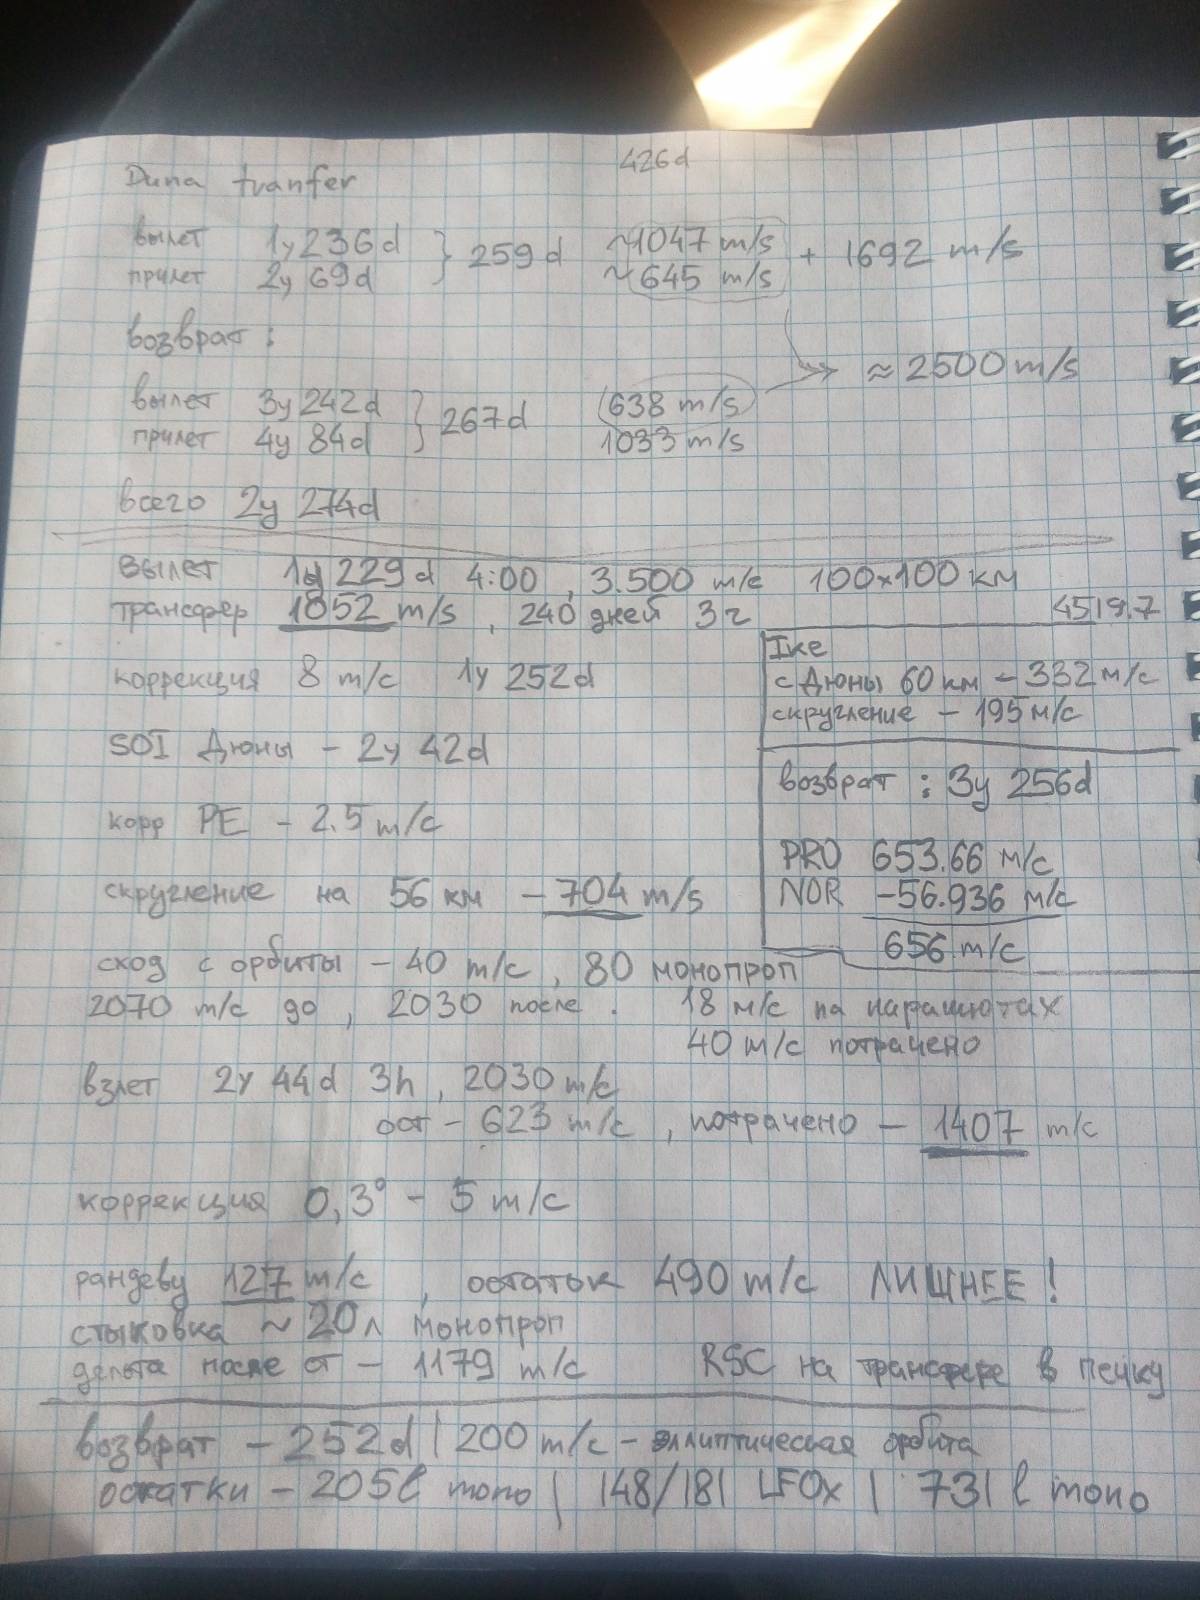 Duna tranfer
426d
вылет 1y 236d } 259d ~1047 m/s + 1692 m/s
прилет 2y 69d ~645 m/s
возврат :
≈ 2500 m/s
вылет 3y 242d } 267d (638 m/s)
прилет 4y 84d 1033 m/s
всего 2y 274d
вылет 1y 229d 4:00 , 3.500 m/c 100x100 км
трансфер 1052 m/s , 240 дней 3г
4519.7
Ike
с Дюны 60 км - 332 м/с
скругление - 195 м/с
коррекция 8 m/c 1y 252d
SOI Дюны - 2y 42d
корр PE - 2.5 m/c
скругление на 56 км - 704 m/s
возврат : 3y 256d
PRO 653.66 м/с
NOR -56.936 м/с
656 m/c
сход с орбиты - 40 m/c , 80 монопроп
2070 m/c до , 2030 после . 18 м/с на парашютах
40 m/c потрачено
взлет 2y 44d 3h , 2030 m/c
ост - 623 m/c , потрачено - 1407 m/c
коррекция 0,3° - 5 m/c
рандеву 127 m/c , остаток 490 m/c ЛИШНЕЕ !
стыковка ~ 20л монопроп
дельта после от - 1179 m/c RSC на трансфере в печку
возврат - 252d | 200 m/c - эллиптическая орбита
остатки - 205l mono | 148/181 LFOx | 731 l mono